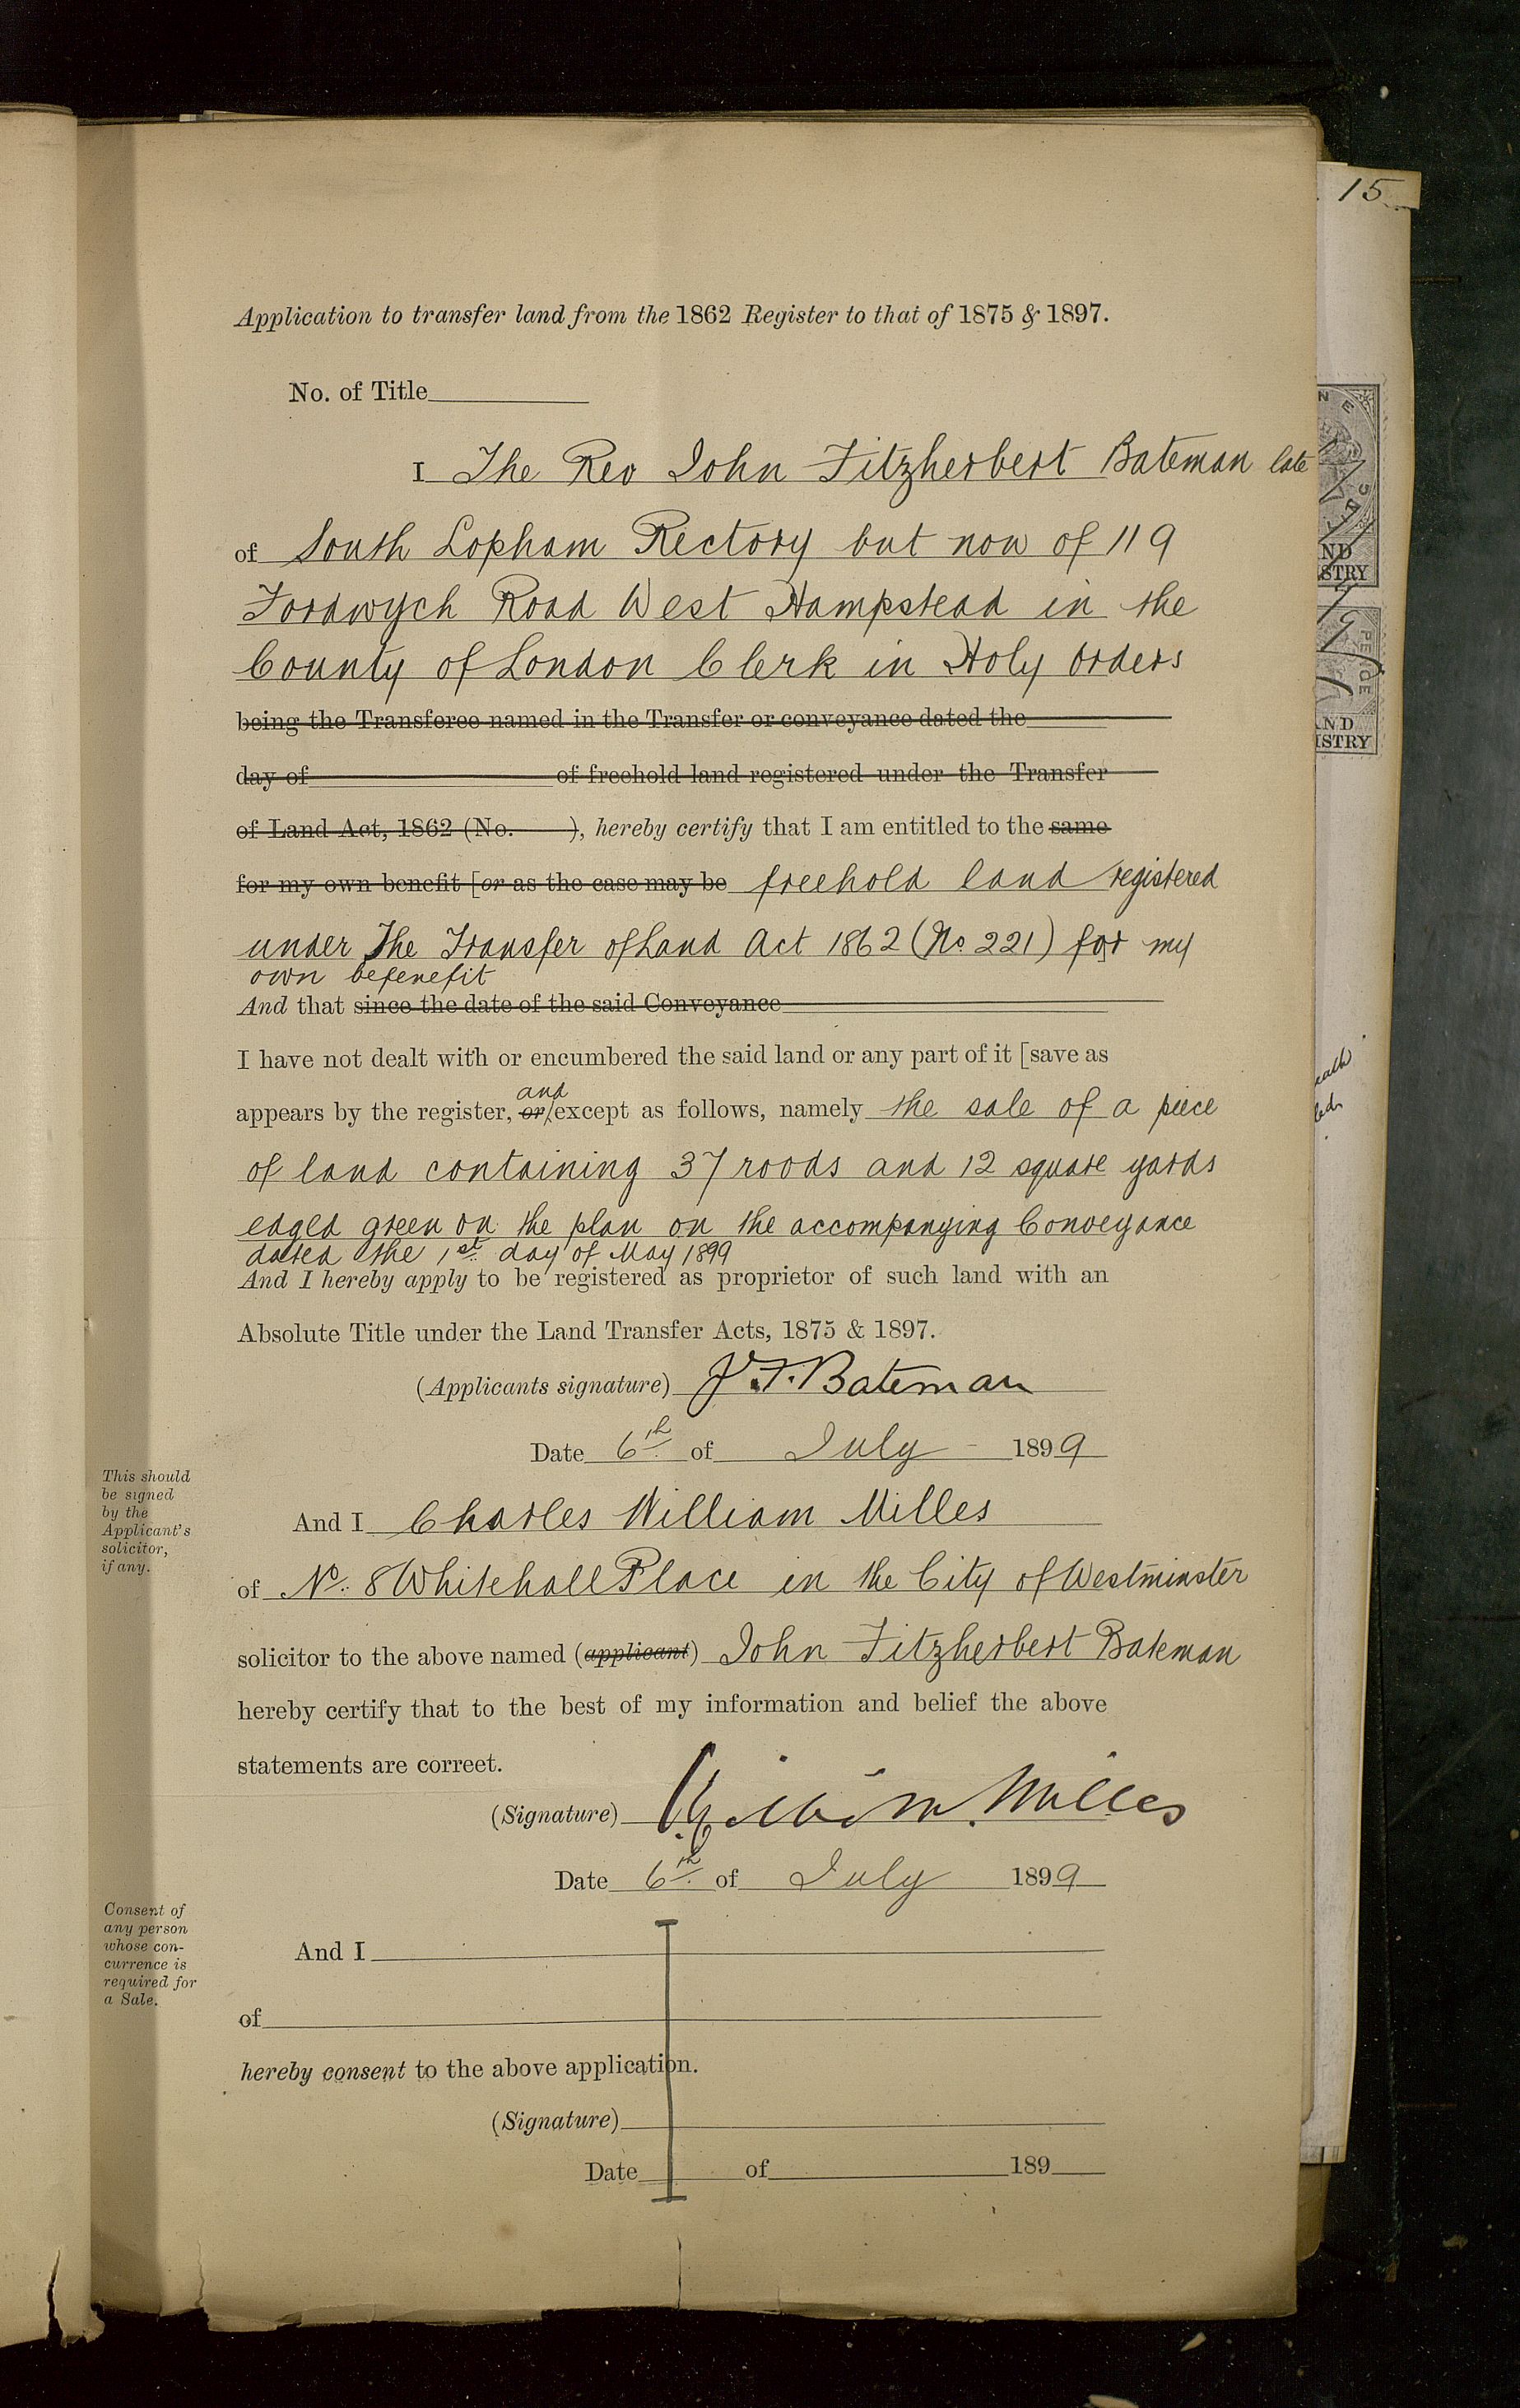 15
Application to transfer land from the 1862 Register to that of 1875 & 1897.
No. of Title
I The Rev John Fitzherbert Bateman late
of South Lopham Rectory but now of 119
Fordwych Road West Hampstead in the
County of London Clerk in Holy orders
being the Transferee named in the Transfer or conveyance dated the
day of of freehold land registered under the Transfer
of Land Act, 1862 (No. ), hereby certify that I am entitled to the same
for my own benefit [or as the case may be freehold land registered
under The Transfer of Land Act 1862 (No. 221) for my
own befenefit
And that since the date of the said Conveyance
I have not dealt with or encumbered the said land or any part of it [save as
and
appears by the register, or/except as follows, namely the sale of a piece
of land containing 37 roods and 12 square yards
edged green on the plan on the accompanying Conveyance
dated the 1st day of May 1899
And I hereby apply to be registered as proprietor of such land with an
Absolute Title under the Land Transfer Acts, 1875 & 1897.
(Applicants signature) J. F. Bateman
Date 6th of July 1899
This should
be signed
by the
Applicant's
solicitor,
if any.
And I Charles William Milles
of No. 8 Whitehall Place in the City of Westminster
solicitor to the above named (applicant) John Fitzherbert Bateman
hereby certify that to the best of my information and belief the above
statements are correct.
(Signature) Milles
Date 6th of July 1899
Consent of
any person
whose con-
currence is
required for
a Sale.
And I
of
hereby consent to the above application.
(Signature)
Date of 189